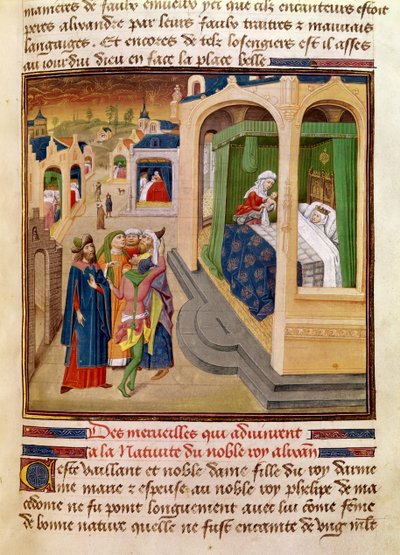 manieres de faulx enuieux yci que telz encanteurs estoit
peres alixandre par leurs faulx traitres z mauuais
languiges. Et encores de telz losengiers est il asses
au iourduy dieu en face la place belle.
Des merueilles qui aduinrent
a la Natiuite du noble roy alixan.
Ceste vaillant et noble dame fille du roy darme
nie marie z espeuse au noble roy phelipe de ma
cedome ne fu point longuement auec lui come feme
de bonne nature quelle ne fust encainte de vng mlt